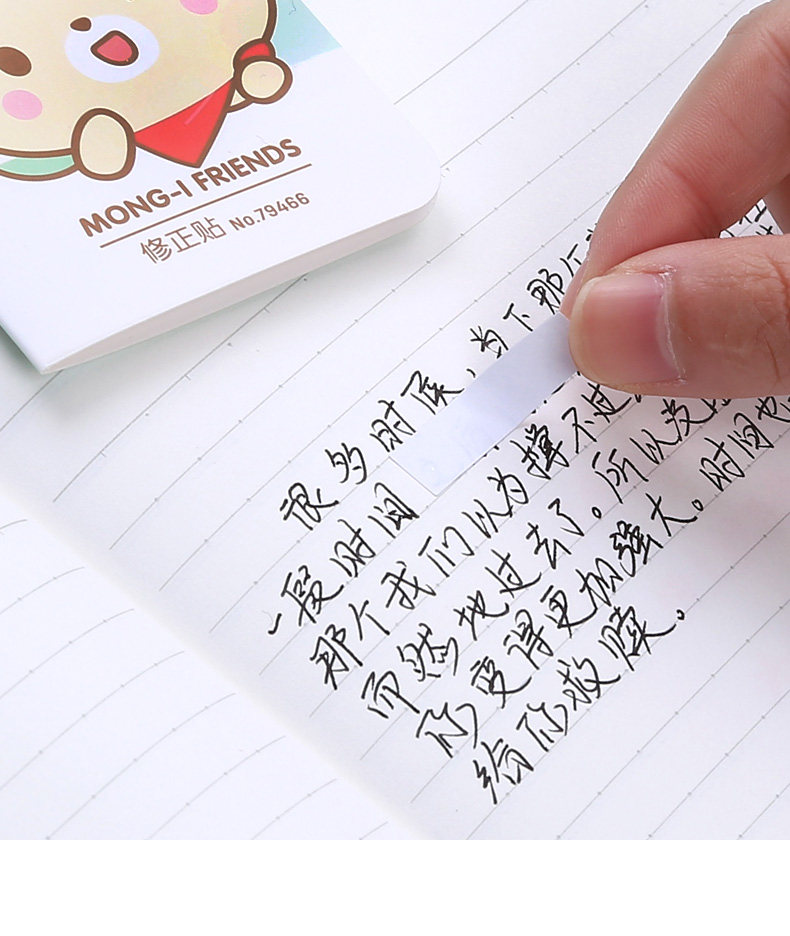 MONG-I FRIENDS
修正贴 No.79466
很多时候,当下那个
一段时间
那个我们以为撑不过
而然地过去了。所以发
的变得更加强大。时间也
给你救赎。